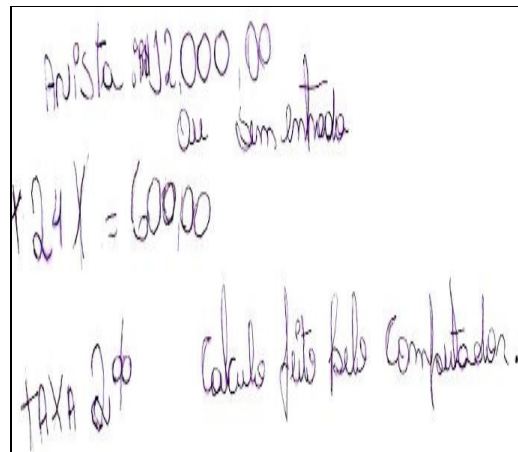 Avista 12,000,00
ou sem entrada
+ 24 X = 600,00
TAXA 2% Calculo feito pelo Computador.